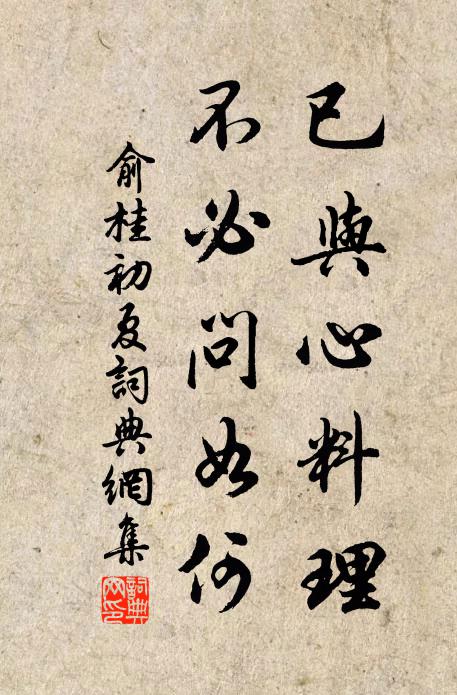 已與心料理
不必問如何
俞桂初夏詞典網集
詞典網印